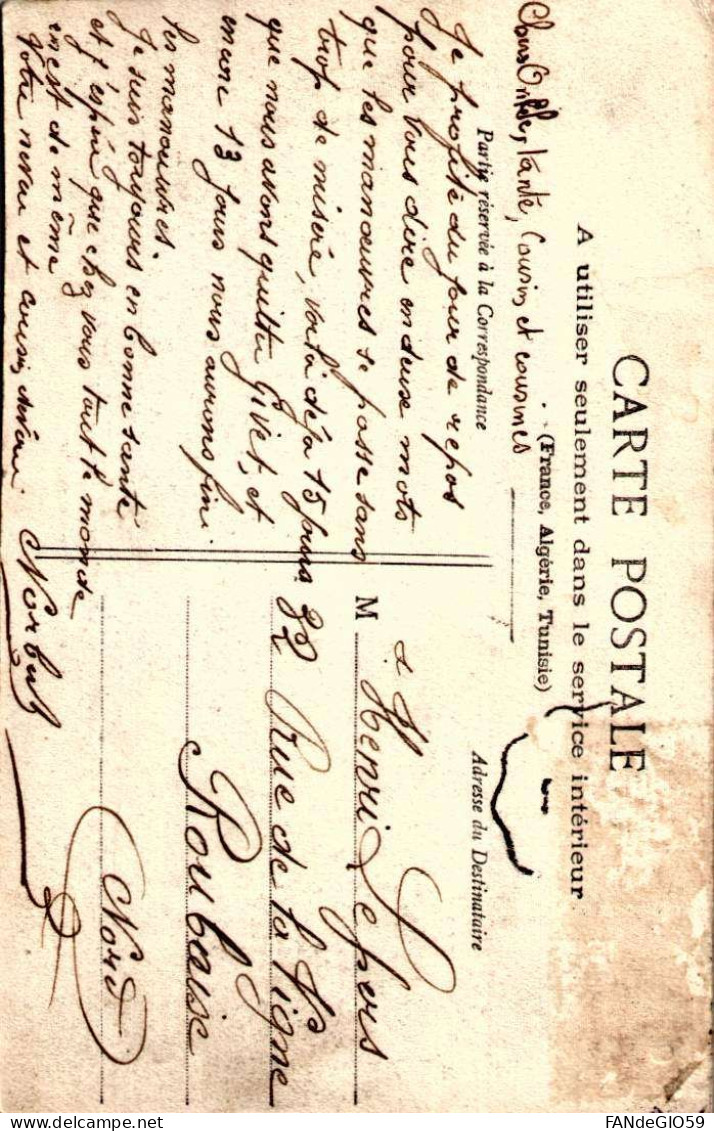 CARTE POSTALE
A utiliser seulement dans le service intérieur
(France, Algérie, Tunisie)
Partie réservée à la Correspondance
Adresse du Destinataire
Chers Oncle, Tante, Cousin, et cousines
Je profite du jour de repos
pour vous dire en deux mots
que les manœuvres se passe sans
trop de misère, voilà déjà 15 jours
que nous avons quitter Givet, et
encore 13 jours nous aurons fini
les manœuvres.
Je suis toujours en bonne santé
et j'espère que chez vous tout le monde
en est de même
Votre neveu et cousin
Norbert
M
Henri Lepers
32 Rue de la Vigne
Roubaix
Nord
FANdeGIO59
delcampe.net